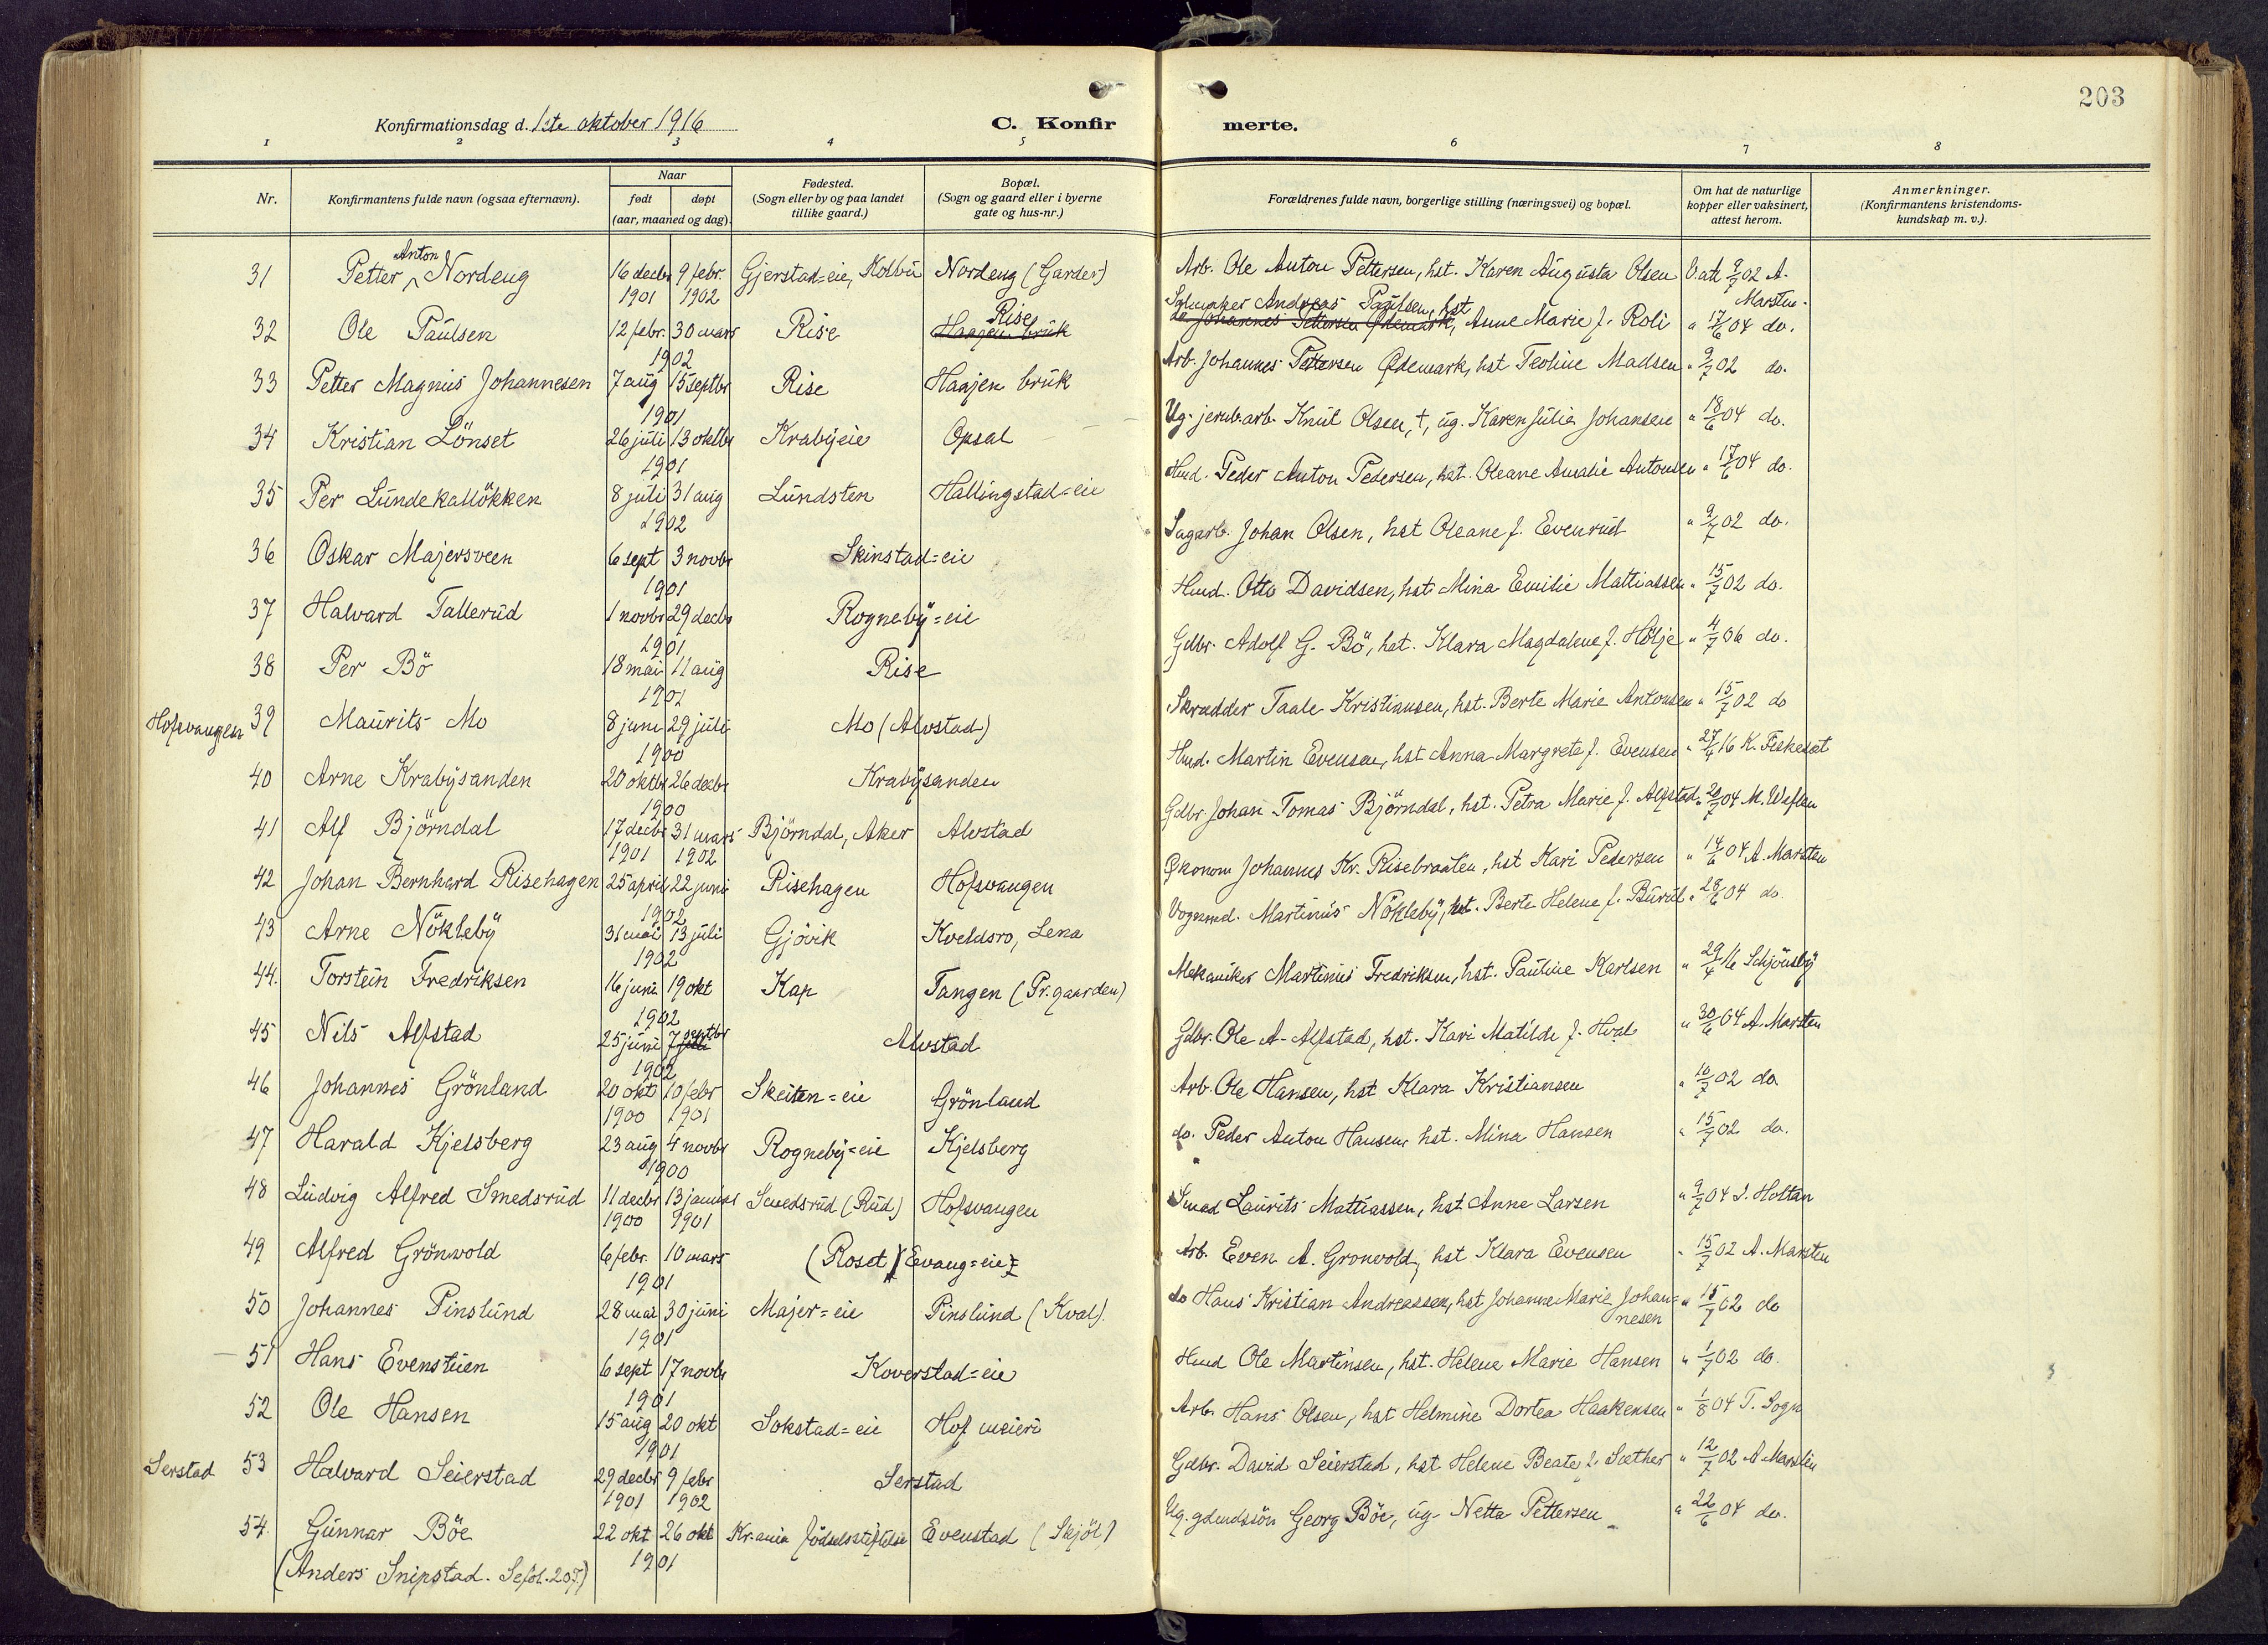 203
Konfirmationsdag d. 1ste oktober 1916 C. Konfirmerte.
1 2 3 4 5 6 7 8
Nr. | Konfirmantens fulde navn (ogsaa efternavn). | Naar født døpt (aar, maaned og dag). | Fødested. (Sogn eller by og paa landet tillike gaard.) | Bopæl. (Sogn og gaard eller i byerne gate og hus-nr.) | Forældrenes fulde navn, borgerlige stilling (næringsvei) og bopæl. | Om hat de naturlige kopper eller vaksinert, attest herom. | Anmerkninger. (Konfirmantens kristendoms-kundskap m. v.).
31 Petter Anton Nordeug 16 decbr 1901 9 febr. 1902 Gjerstad=eie, Kolbu Nordeug (Garder) Arb. Ole Anton Pettersen, hst. Karen Augusta Olsen V.att 9/7 02 A. Marsten.
32 Ole Paulsen 12 febr. 30 mars 1902 Rise Haajen bruk Rise Salmaker Andreas Paulsen, hst do Johannes Pettersen Ødemark, Anne Marie f. Roli " 17/6 04 do.
33 Petter Magnus Johannesen 7 aug 15 septbr 1901 Rise Haajen bruk Arb. Johannes Pettersen Ødemark, hst Teoline Madsen " 9/7 02 do.
34 Kristian Lönset 26 juli 13 oktbr 1901 Krabyeie Opsal Ug. jernb.arb. Knut Olsen, †, ug. Karen Julia Johansen " 18/6 04 do.
35 Per Lundekalløkken 8 juli 31 aug 1902 Lundsten Hallingstad=eie Hmd. Peder Anton Pedersen, hst. Oleane Amalie Antonsen " 17/6 04 do.
36 Oskar Majersveen 6 sept 3 novbr 1901 Skinstad=eie Sagarb. Johan Olsen, hst Oleane f. Evenrud " 9/7 02 do.
37 Halvard Tallerud 1 novbr 29 decbr 1901 Rogneby=eie Hmd. Otto Davidsen, hst Mina Emilie Mattiassen " 15/7 02 do.
38 Per Bö 18 mai 11 aug 1901 Rise Gdbr. Adolf G. Bö, hst. Klara Magdalene f. Hölje " 4/7 06 do.
Hofsvangen 39 Maurits Mo 8 juni 29 juli 1900 Mo (Alvstad) Skrædder Taale Kristiansen, hst. Berte Marie Antonsen " 15/7 02 do
40 Arne Krabysanden 20 oktbr 26 decbr 1900 Krabysanden Hmd. Martin Evensen, hst Anna Margrete f. Evensen " 27/4 16 K. Fiskeset
41 Alf Björndal 17 decbr 1901 31 mars 1902 Björndal, Aker Alvstad Gdbr. Johan Tomas Björndal, hst. Petra Marie f. Alfstad " 20/7 04 M. Weflen
42 Johan Bernhard Risehagen 25 april 22 juni 1902 Risehagen Hofsvangen Økonom Johannes Kr. Risebraaten, hst Kari Pedersen " 14/6 04 A. Marsten
43 Arne Nökleby 31 mai 13 juli 1902 Gjövik Kveldsro, Lena Vognmd. Martinus Nökleby, hst. Berte Helene f. Burul " 28/6 04 do.
44. Torstein Fredriksen 16 juni 19 okt 1902 Kap Tangen (Pr.gaarden) Mekaniker Martinius Fredriksen, hst. Pauline Karlsen " 29/4 16 Schjönsby
45 Nils Alfstad 25 juni 7 juli septbr 1902 Alvstad Gdbr. Ole A. Alfstad, hst. Kari Matilde f. Hval " 30/6 04 A. Marsten
46 Johannes Grönland 20 okt 1900 10 febr 1901 Skeiten=eie Grönland Arb. Ole Hansen, hst Klara Kristiansen " 10/7 02 do.
47 Harald Kjelsberg 23 aug 4 novbr 1900 Rogneby=eie Kjelsberg do. Peder Anton Hansen, hst. Mina Hansen " 15/7 02 do.
48 Ludvig Alfred Smedsrud 11 decbr 1900 13 januar 1901 Smedsrud (Rud) Hofsvangen Smed Laurits Mattiassen, hst Anne Larsen " 9/7 04 J. Holtan
49 Alfred Grönwold 6 febr. 10 mars 1901 (Roset) Evang=eie Arb. Even A. Gronvold, hst Klara Evensen " 15/7 02 A. Marsten
50 Johannes Pinslund 28 mai 30 juni 1901 Majer=eie Pinslund (Kval). do Hans Kristian Andreassen, hst Johanne Marie Johannesen " 15/7 02 do
51 Hans Evenstuen 6 sept 17 novbr 1901 Koverstad=eie Hmd Ole Martinsen, hst. Helene Marie Hansen " 1/7 02 do.
52 Ole Hansen 15 aug 20 okt 1901 Sokstad=eie Hof meieri Arb. Hans Olsen, hst Helmine Dortea Haakensen " 1/8 04 T. Sogn
Serstad 53 Halvard Seierstad 29 decbr 1901 9 febr 1902 Serstad Gdbr. David Seierstad, hst Helene Beate f. Sæther " 12/7 02 A Marsten
54. Gunnar Böe 22 okt 26 okt 1901 Kr.ania födselsstiftelse Evenstad (Skjöl) Ug. gdmdssön Georg Böe, ug. Netta Pettersen " 22/6 04 do.
(Anders Snipstad. Se fol. 207)